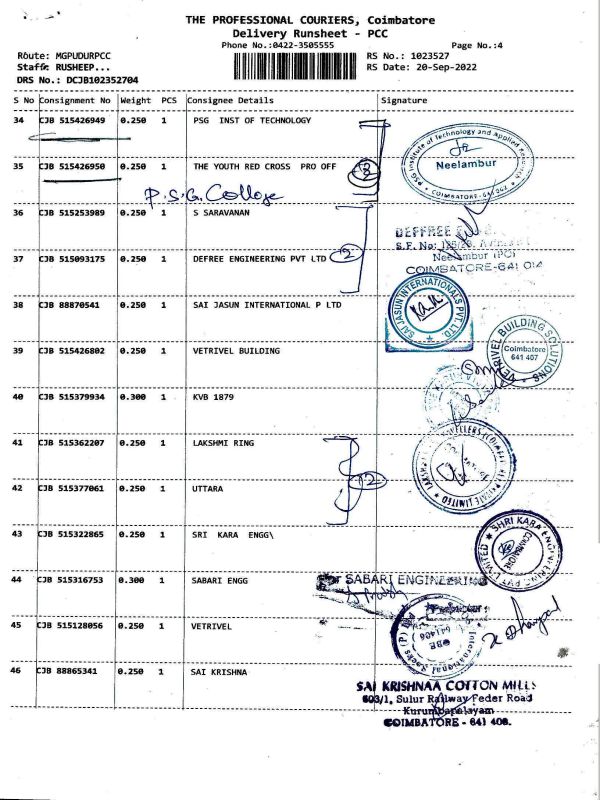 THE PROFESSIONAL COURIERS, Coimbatore
Delivery Runsheet - PCC
Phone No.:0422-3505555 Page No.:4
Route: MGPUDURPCC RS No.: 1023527
Staff: RUSHEEP... RS Date: 20-Sep-2022
DRS No.: DCJB102352704
S No Consignment No Weight PCS Consignee Details Signature
34 CJB 515426949 0.250 1 PSG INST OF TECHNOLOGY
PSG Institute of Technology and Applied Research
Neelambur
COIMBATORE-641 062
35 CJB 515426950 0.250 1 THE YOUTH RED CROSS PRO OFF
P.S.G. College
36 CJB 515253989 0.250 1 S SARAVANAN
DEFFREE
S.F. No:
37 CJB 515093175 0.250 1 DEFREE ENGINEERING PVT LTD 2
Neelambur (PO)
COIMBATORE-641 014
38 CJB 88870541 0.250 1 SAI JASUN INTERNATIONAL P LTD
SAI JASUN INTERNATIONALS PVT. LTD.
39 CJB 515426802 0.250 1 VETRIVEL BUILDING
VETRIVEL BUILDING SOLUTIONS
Coimbatore
641 407
40 CJB 515379934 0.300 1 KVB 1879
41 CJB 515362207 0.250 1 LAKSHMI RING
PRIVATE LIMITED
42 CJB 515377061 0.250 1 UTTARA
43 CJB 515322865 0.250 1 SRI KARA ENGG\
SHRI KARA ENGINEERING PVT LIMITED
COIMBATORE
44 CJB 515316753 0.300 1 SABARI ENGG
For SABARI ENGINEERING
45 CJB 515128056 0.250 1 VETRIVEL
International Sacks (P)
CBE
641406
46 CJB 88865341 0.250 1 SAI KRISHNA
SAI KRISHNAA COTTON MILLS
603/1, Sulur Railway Feder Road
Kurumbapalayam
COIMBATORE - 641 406.